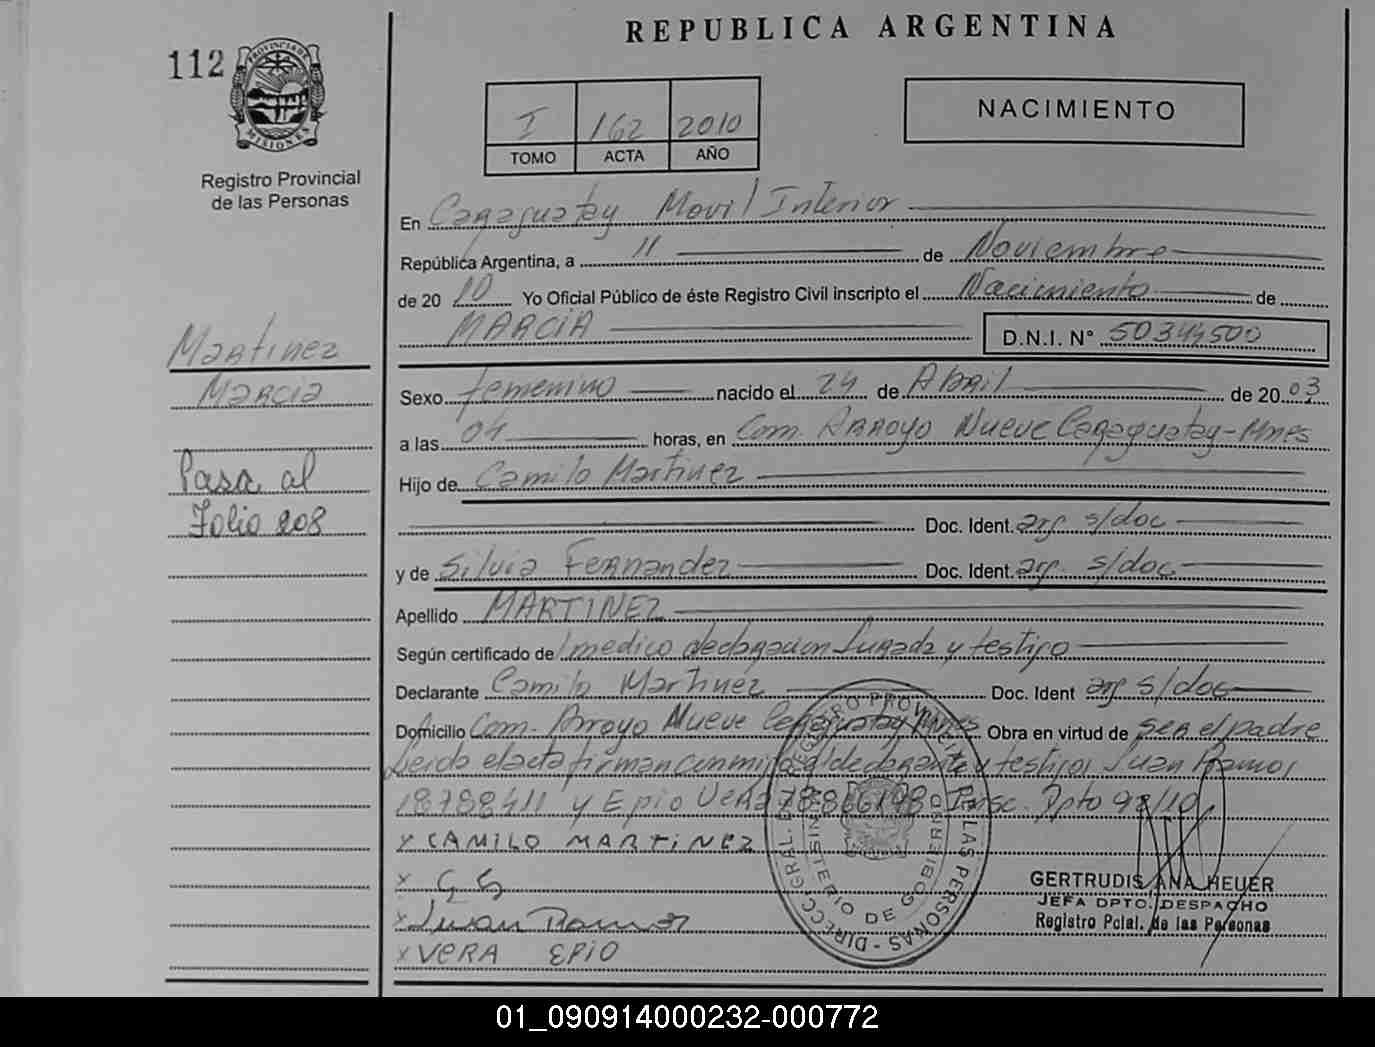 REPUBLICA ARGENTINA
112
PROVINCIA DE MISIONES
Registro Provincial
de las Personas
I 162 2010
TOMO ACTA AÑO
NACIMIENTO
En Caraguatay Movil Interior
República Argentina, a 11 de Noviembre
de 2010 Yo Oficial Público de éste Registro Civil inscripto el Nacimiento de
MARCIA D.N.I. N° 50344500
Martinez
Marcia
Pasa al
Folio 208
Sexo femenino nacido el 24 de Abril de 2003
a las 04 horas, en Com. Arroyo Nueve Caraguatay-Mnes
Hijo de Camilo Martinez
Doc. Ident. arg s/doc
y de Silvia Fernandez Doc. Ident. arg. s/doc
Apellido MARTINEZ
Según certificado de medico declaracion Jurada y testigo
Declarante Camilo Martinez Doc. Ident arg s/doc
Domicilio Com. Arroyo Nueve Caraguatay Mnes Obra en virtud de ser el padre
Leida el acta firman conmigo el declarante y testigos Juan Ramos
18788411 y Epio Vera Insc. Dpto 92/10
x CAMILO MARTINEZ
x
x Juan Ramos
x VERA EPIO
DIRECC. GRAL. DEL REGISTRO PROVINCIAL DE LAS PERSONAS
MINISTERIO DE GOBIERNO
GERTRUDIS ANA HEUER
JEFA DPTO. DESPACHO
Registro Pcial. de las Personas
01_090914000232-000772